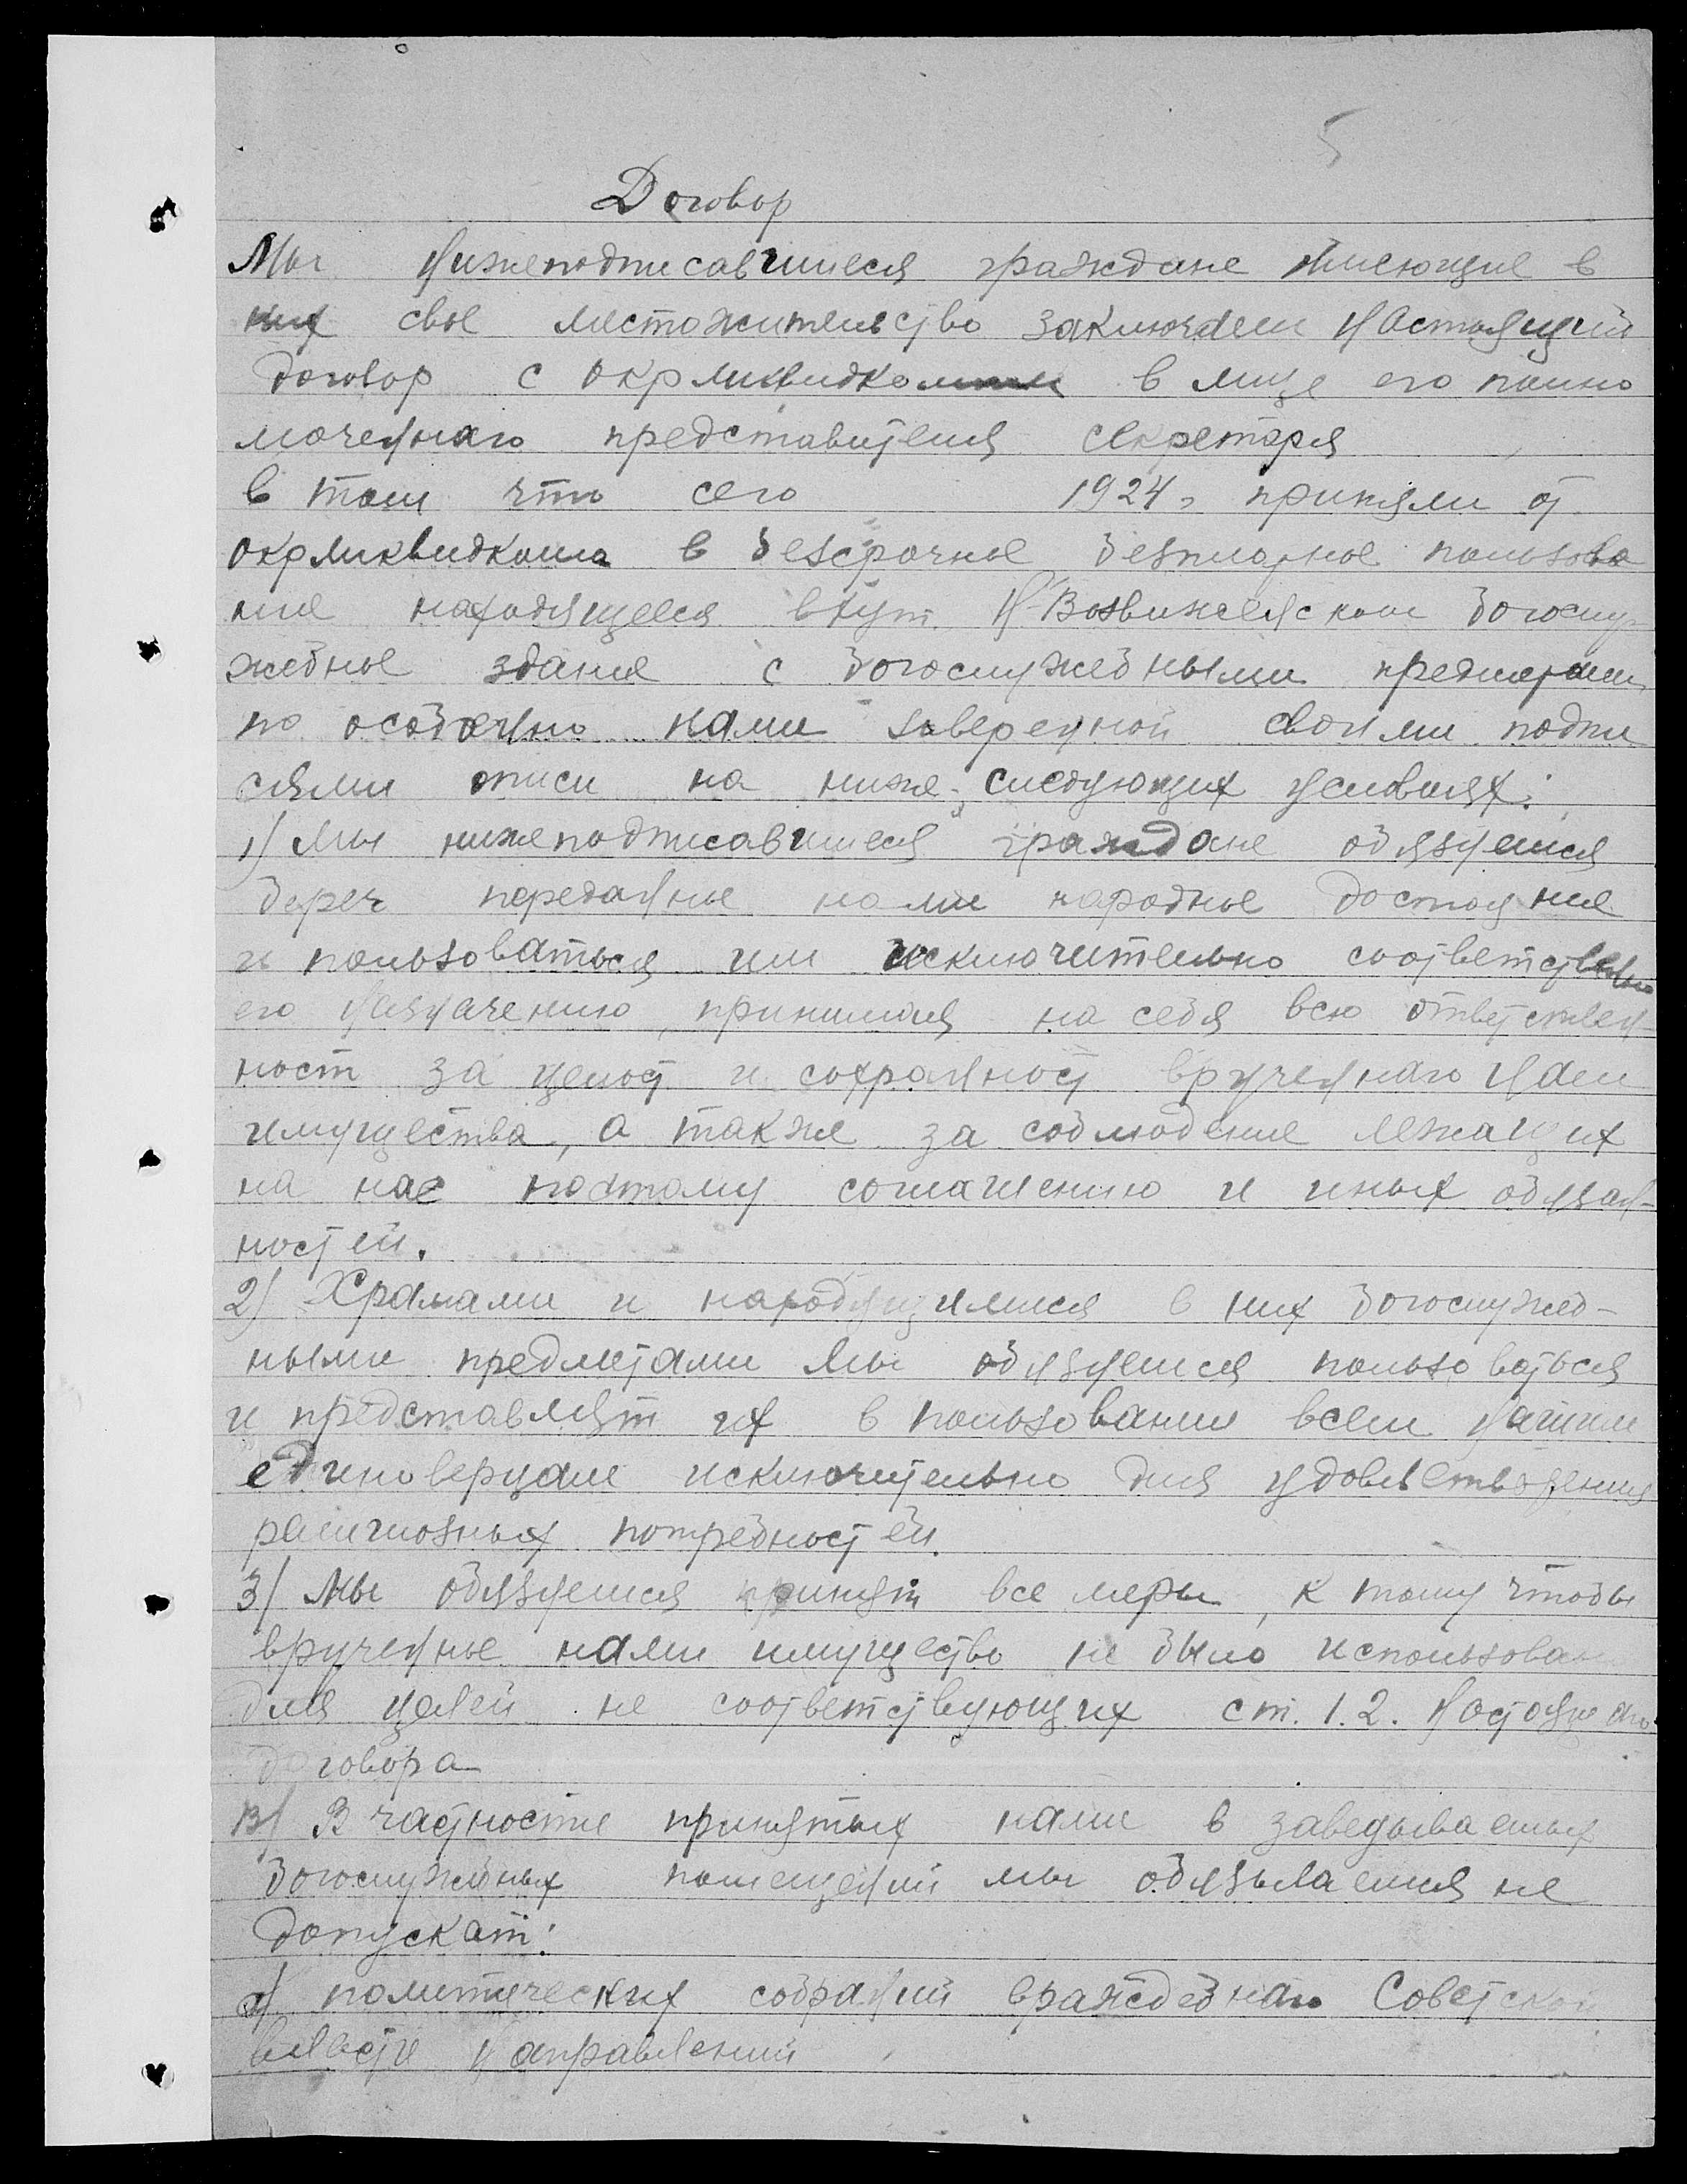 5
Договор
Мы нижеподписавшиеся граждане имеющие в
них свое местожительство заключаем настоящий
договор с окрликвидком в лице его полно
моченнаго представителя секретаря
в том что сего 1924 г приняли от
окрликвидкома в безсрочное безплатное пользова
ние находящееся в хут. Н-Воздвиженском богослу-
жебное здание с богослужебными предметами
по особенно нами заверенной своими подпи
сями описи на ниже-следующих условиях:
1) Мы нижеподписавшиеся граждане обязуемся
береч переданные нами народное достояние
и пользоваться им исключительно соответственно
его назначению, принимая на себя всю ответствен-
ност за целост и сохранност врученнаго нам
имущества, а также за соблюдение лежащих
на нас поэтому соглашению и иных обязан-
ностей.
2) Храмами и находящимися в них богослужеб-
ными предметами мы обязуемся пользоваться
и представлят их в пользование всем нашим
единоверцам исключительно для удовлетворения
религиозных потребностей.
3) Мы обязуемся принят все меры, к тому чтобы
врученные нами имущество не было использован
для целей не соответствующих ст. 1.2. настоящего
договора
В) В частности принятых нами в заведываемых
богослужебных помещений мы обязываемся не
допускат:
а) политических собраний враждебнаго Советской
власти направлений